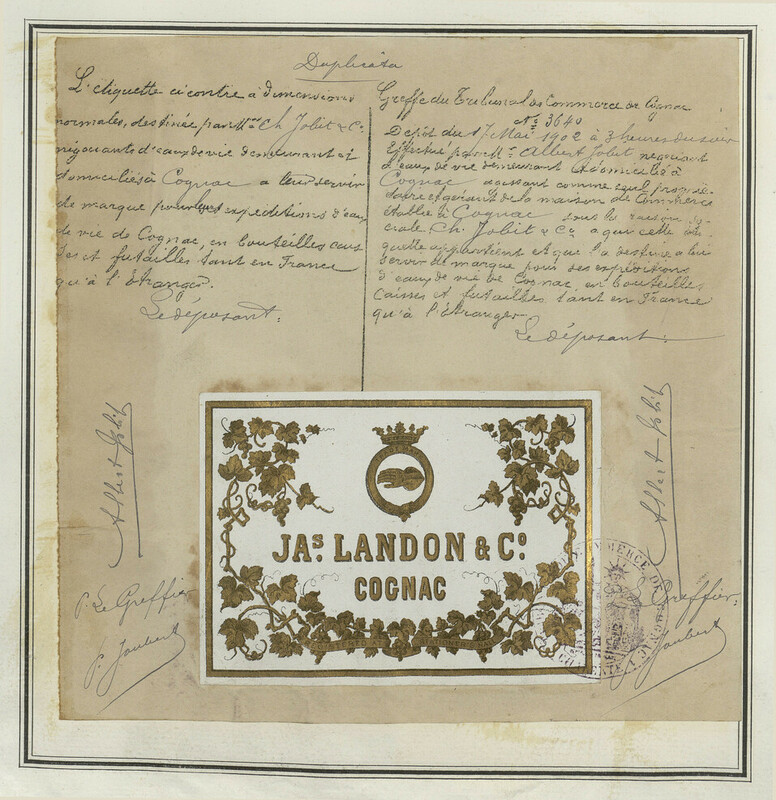 Duplicata
L'étiquette ci contre à dimensions
normales, destinée par M.rs Ch. Jobit & Co.
négociants d'eaux de vie demeurant et
domiciliés à Cognac a leur servir
de marque pour leurs expéditions d'eaux
de vie de Cognac, en bouteilles caisses
et futailles tant en France
qu'à l'étranger.
Le déposant:
Greffe du Tribunal de Commerce de Cognac
No 3640
Dépôt du 17 Mai 1902 à 3 heures du soir
Effectué par M.r Albert Jobit negociant
d'eaux de vie demeurant et domicilié à
Cognac agissant comme seul proprié-
taire et gérant de la maison de Commerce
établie à Cognac sous la raison so-
ciale Ch. Jobit & Co. a qui cette éti-
quette appartient et qui l'a destinée a lui
servir de marque pour ses expéditions
d'eaux de vie de Cognac, en bouteilles,
Caisses et futailles tant en France
qu'à l'étranger.
Le déposant:
Albert Jobit
Albert Jobit
JAS. LANDON & CO.
COGNAC
P. Le Greffier
P. Joubert
Greffier:
Joubert
COMMERCE DE